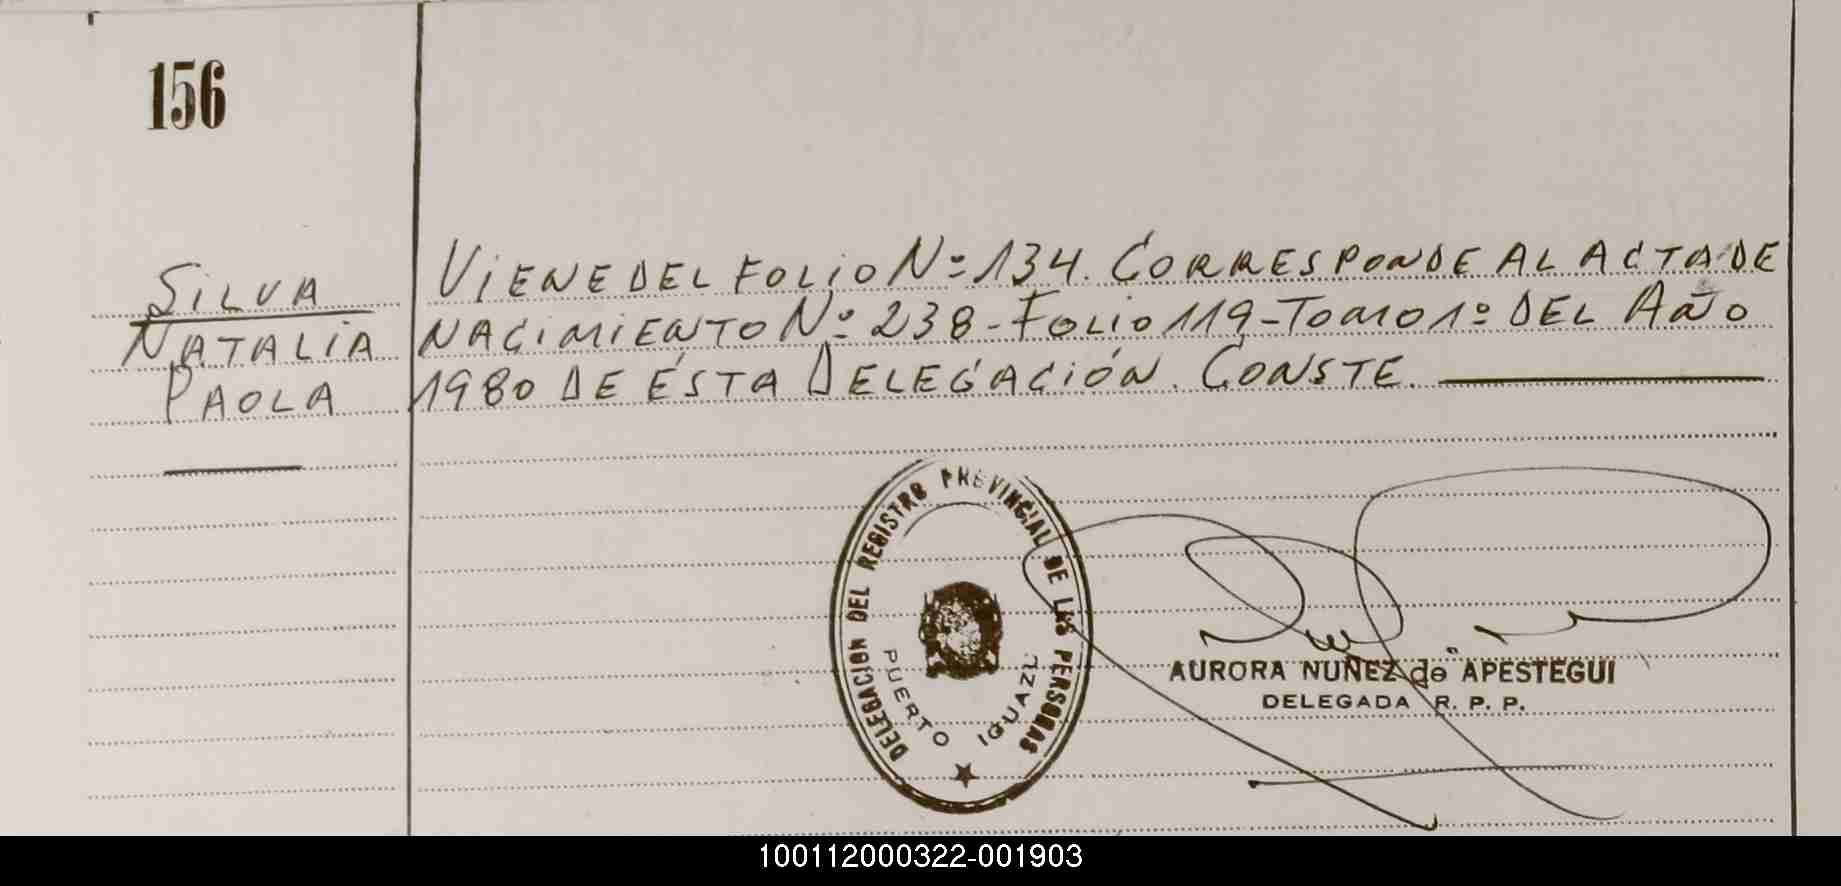 156
SILVA
NATALIA
PAOLA
VIENE DEL FOLIO Nº 134. CORRESPONDE AL ACTA DE
NACIMIENTO Nº 238 - FOLIO 119 - TOMO 1º DEL AÑO
1980 DE ÉSTA DELEGACIÓN. CONSTE.
DELEGACION DEL REGISTRO PROVINCIAL DE LAS PERSONAS
PUERTO IGUAZU
AURORA NUÑEZ de APESTEGUI
DELEGADA R. P. P.
100112000322-001903